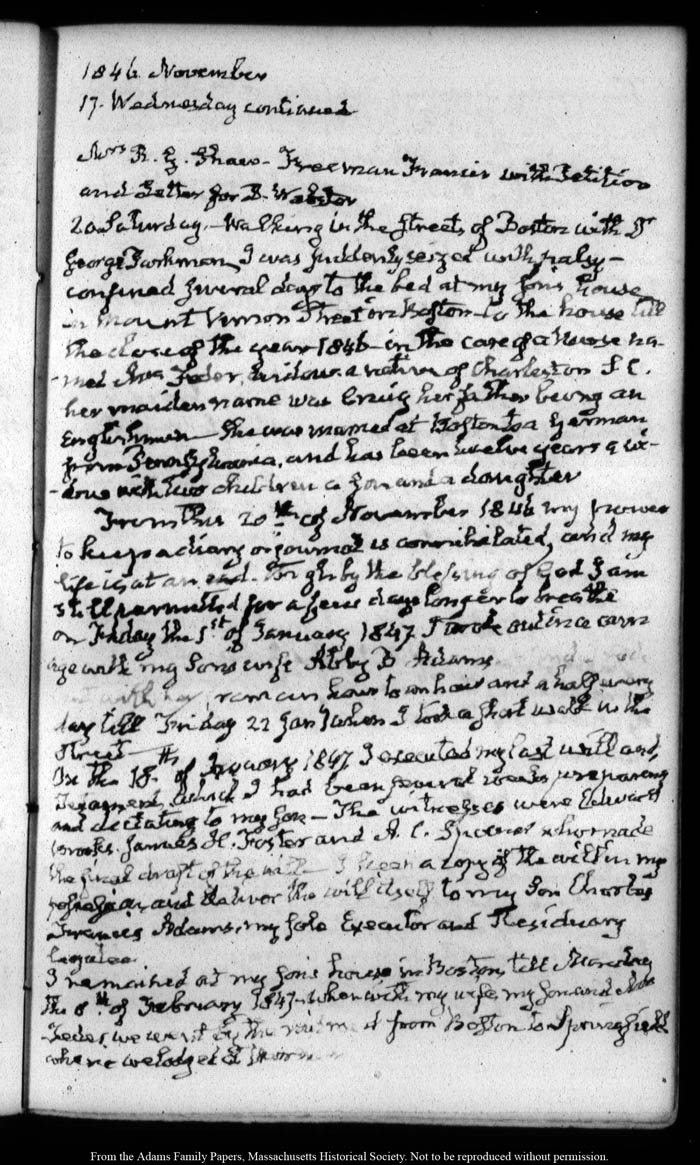 1846. November
17. Wednesday continued
Mrs R. G. Shaw - Freeman Francis with Petition
and Letter for D. Webster
20. Saturday. - Walking in the Streets of Boston with Dr
George Parkman, I was suddenly seized with palsy -
confined several days to the bed at my son's house
in Mount Vernon Street in Boston - to the house till
the close of the year 1846 - in the care of a Nurse na-
-med Mrs Feder, widow a native of Charleston S. C.
her maiden name was Craig her father being an
Englishman She was married at Boston to a German
from Pennsylvania, and has been twelve years a wi-
-dow with two children a son and a daughter
From this 20th of November 1846 my power
to keep a diary or journal is annihilated, and my
life is at an end. Though by the blessing of God I am
still permitted for a few days longer to breathe
on Friday the 1st of January 1847. I took out in a carri
age with my Son's wife Abby B Adams
an hour to an hour and a half every
day till Friday 22 Jany when I took a short walk in the
Street
On the 18th of January 1847 I executed my last will and
Testament, which I had been several weeks preparing
and dictating to my son - The witnesses were Edward
Brooks. James H. Foster and A. C. Spooner who made
the final draft of the will - I keep a copy of the will in my
possession and deliver the will itself to my Son Charles
Francis Adams, my sole Executor and Residuary
legatee.
I remained at my son's house in Boston, till Monday
the 8th of February 1847. when with my wife my son and Mrs
Feder, we went by the from Boston to Springfield
where we lodged at
From the Adams Family Papers, Massachusetts Historical Society. Not to be reproduced without permission.